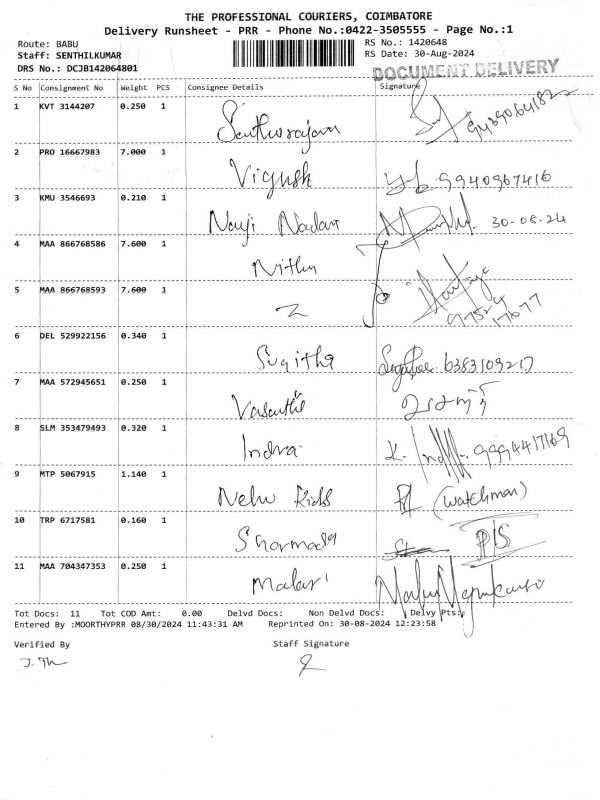 THE PROFESSIONAL COURIERS, COIMBATORE
Delivery Runsheet - PRR - Phone No.:0422-3505555 - Page No.:1
Route: BABU
RS No.: 1420648
Staff: SENTHILKUMAR
RS Date: 30-Aug-2024
DRS No.: DCJB142064801
DOCUMENT DELIVERY
S No Consignment No Weight PCS Consignee Details Signature
1 KVT 3144207 0.250 1
2 PRO 16667983 7.000 1
Vignesh 9940967416
3 KMU 3546693 0.210 1
30-08-24
4 MAA 866768586 7.600 1
Nithu
5 MAA 866768593 7.600 1
97524
17677
6 DEL 529922156 0.340 1
Sugitha 6383109217
7 MAA 572945651 0.250 1
Vasanthi வசந்தி
8 SLM 353479493 0.320 1
Indra 9994417169
9 MTP 5067915 1.140 1
Kids (watchman)
10 TRP 6717581 0.160 1
P/S
11 MAA 704347353 0.250 1
Malari
Tot Docs: 11 Tot COD Amt: 0.00 Delvd Docs: Non Delvd Docs: Delvy Pts:
Entered By :MOORTHYPRR 08/30/2024 11:43:31 AM Reprinted On: 30-08-2024 12:23:58
Verified By Staff Signature